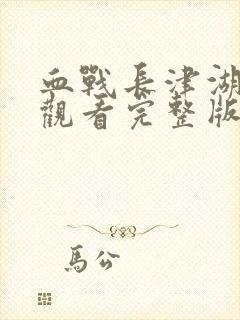 血戰長津湖
觀看完整版
馬公